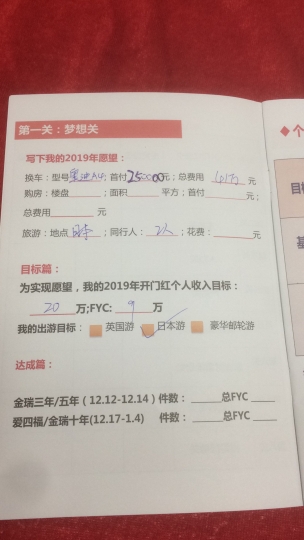 第一关：梦想关
写下我的2019年愿望：
换车：型号奥迪A4；首付250000元；总费用 元
购房：楼盘 ；面积 平方；首付 元；
总费用 元
旅游：地点日本；同行人：2人；花费： 元
目标篇：
为实现愿望，我的2019年开门红个人收入目标：
20万;FYC: 9万
我的出游目标： 英国游 日本游 豪华邮轮游
达成篇：
金瑞三年/五年（12.12-12.14）件数： 总FYC
爱四福/金瑞十年(12.17-1.4) 件数： 总FYC
个
目标
基